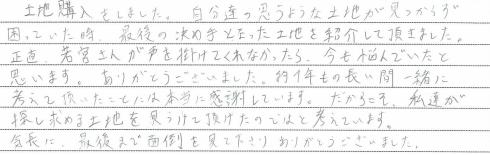 土地購入をしました。自分達の思うような土地が見つからず
困っていた時、最後の決め手となった土地を紹介して頂きました。
正直、若宮さんが声を掛けてくれなかったら、今も悩んでいたと
思います。ありがとうございました。約1年もの長い間一緒に
考えて頂いたことには本当に感謝しています。だからこそ、私達が
探し求める土地を見つけて頂けたのではと考えています。
気長に、最後まで面倒を見て下さりありがとうございました。